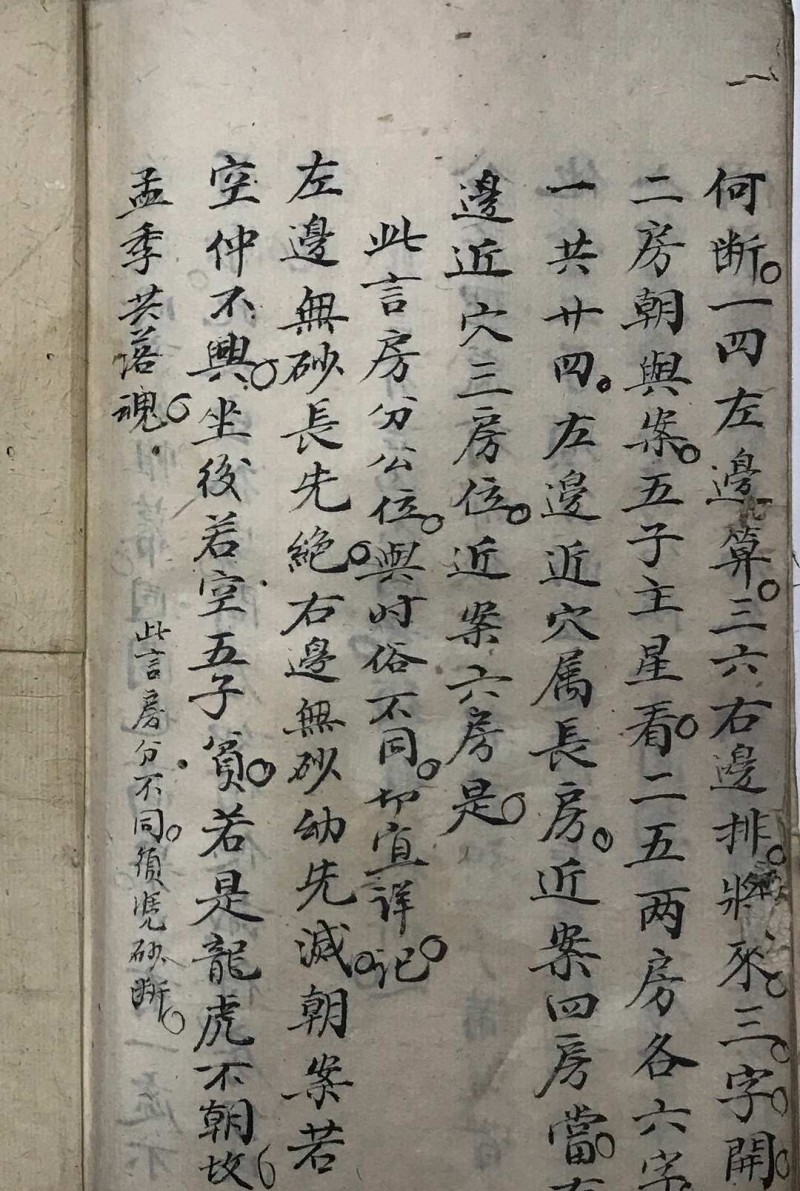 何断。一四左邊算。三六右邊排。將來。三字開
二房朝與案。五子主星看。二五两房各六字
一共廿四。左邊近穴属長房。近案四房當。右
邊近穴三房位。近案六房是。
此言房分公位。與时俗不同。切宜详记。
左邊無砂長先絶。右邊無砂幼先滅。朝案若
空仲不興。坐後若空五子貧。若是龍虎不朝坟
孟季共落魂。
此言房分不同。須凭砂断。